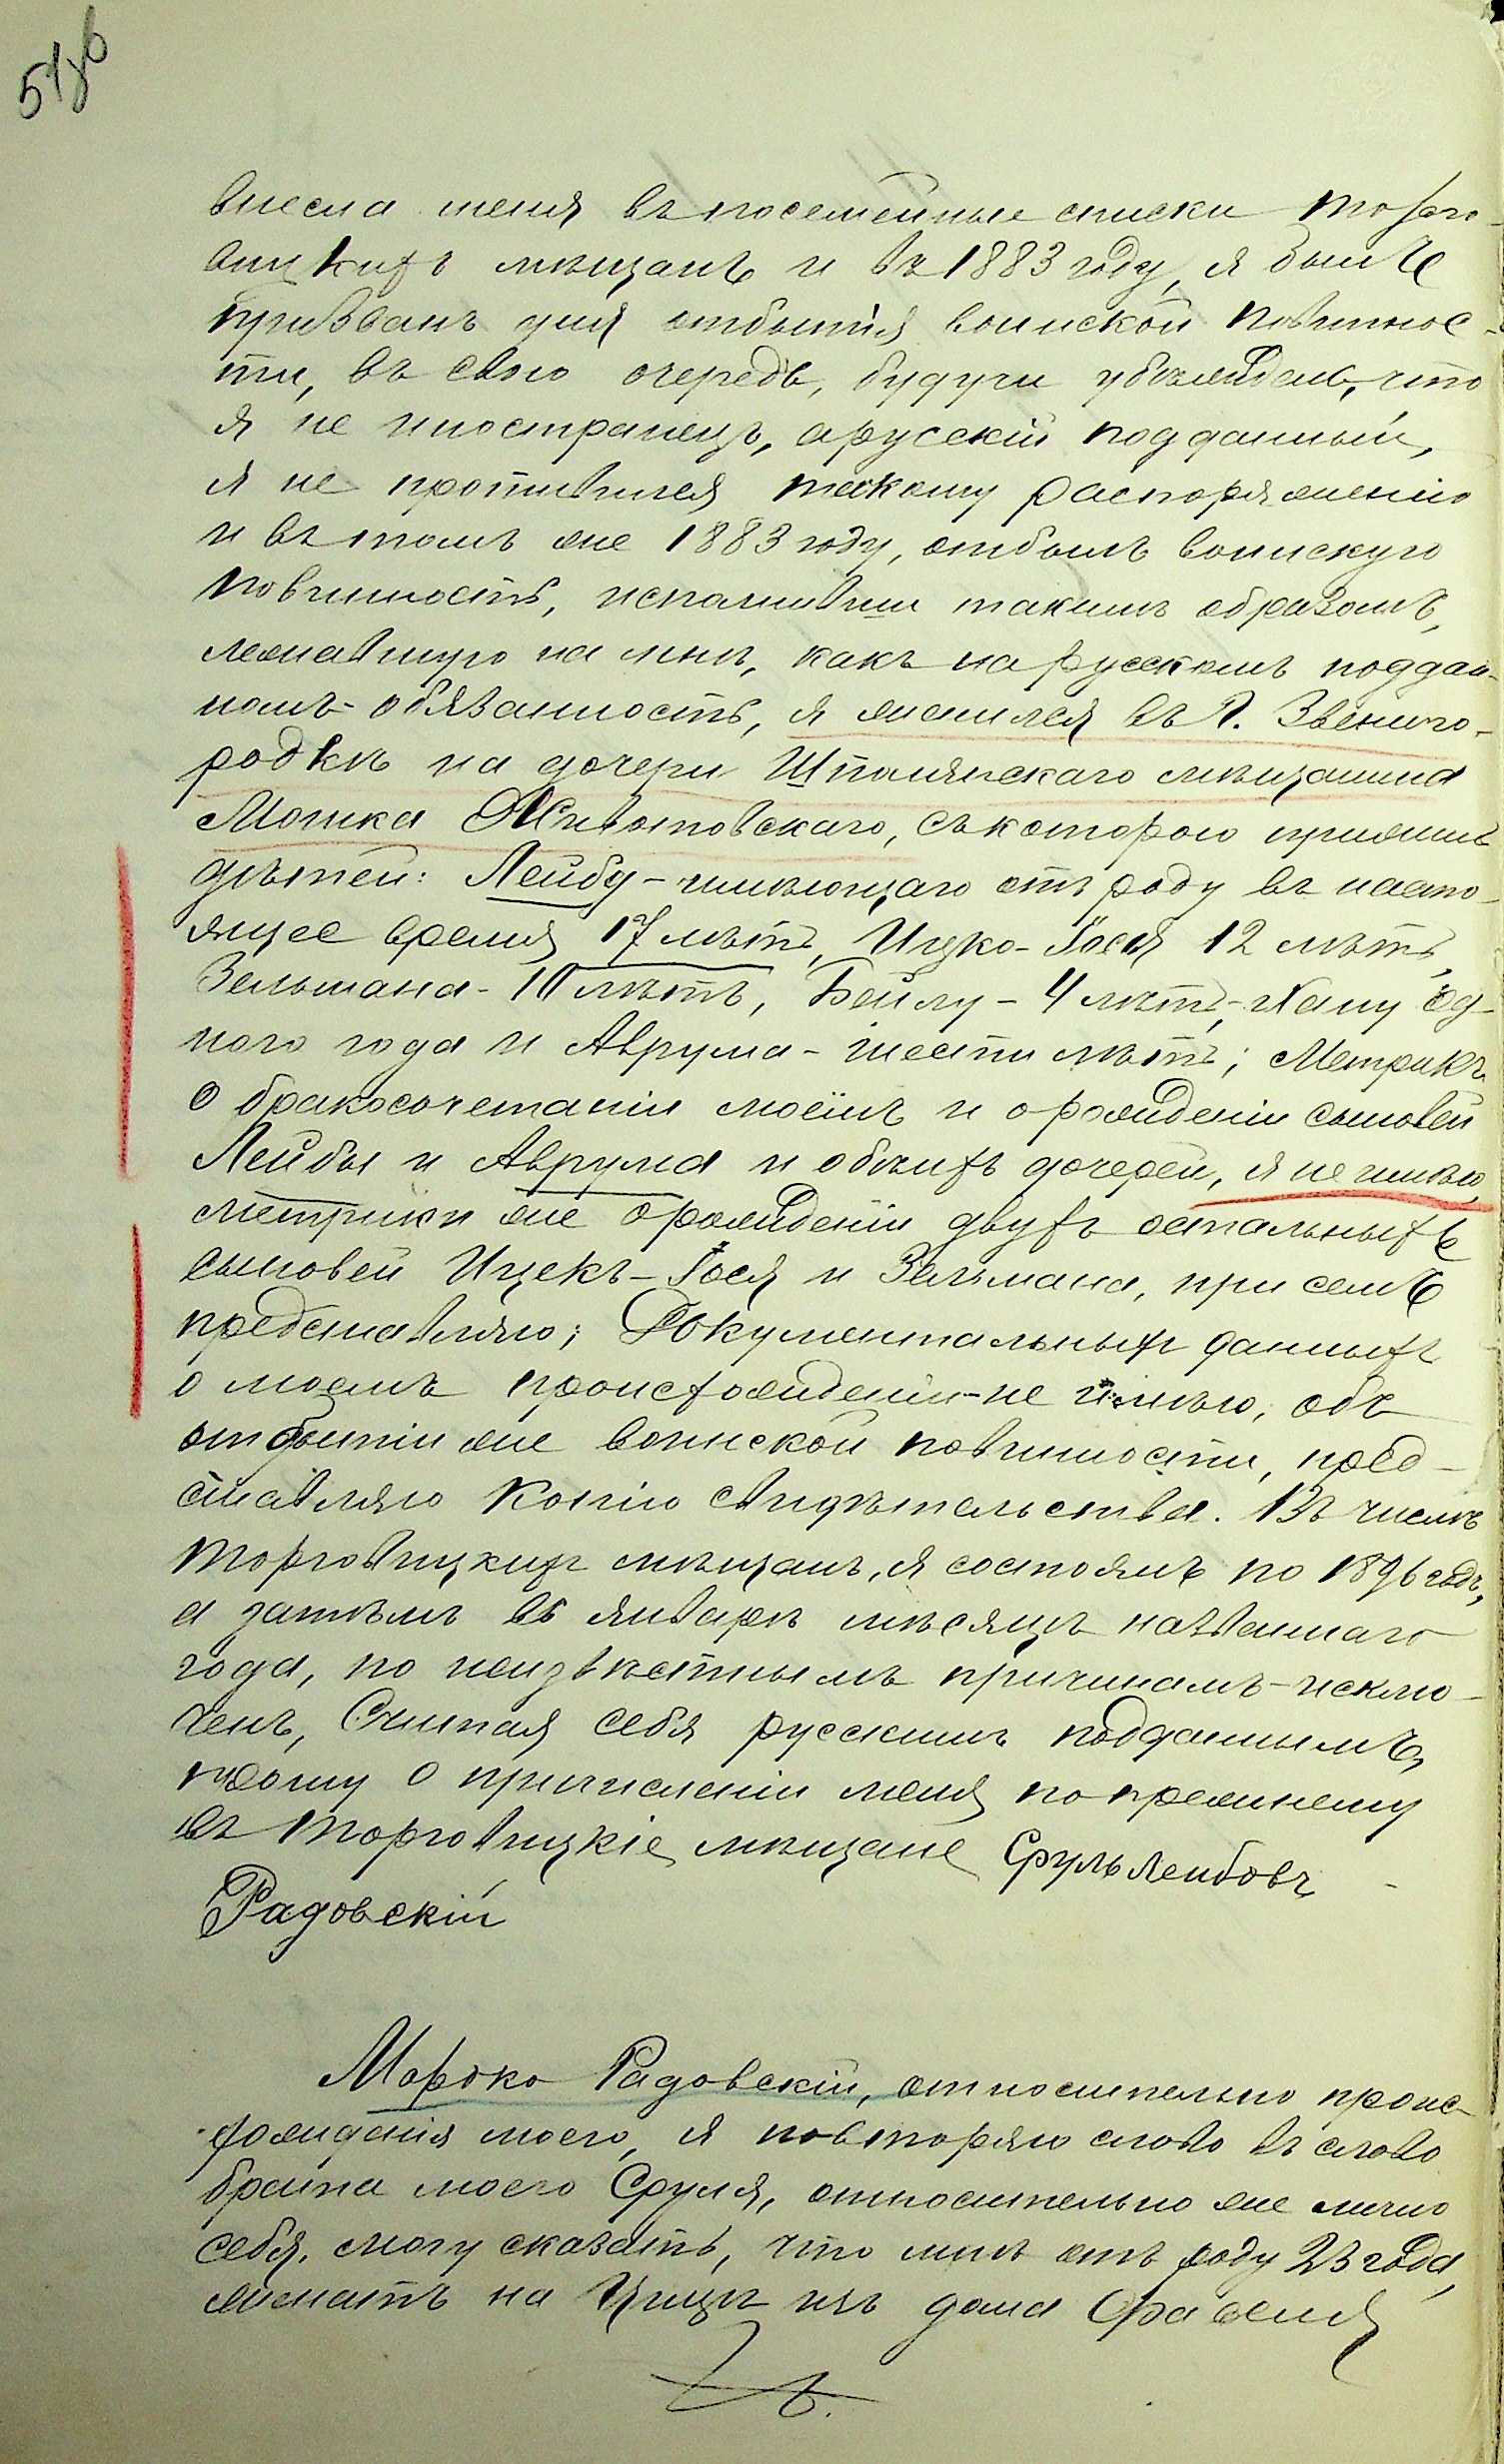 51об
внесла меня въ посемейные списки Торго-
вицкихъ мѣщанъ и въ 1883 году, я былъ
призванъ для отбытія воинской повиннос-
ти, въ свою очередь, будучи убѣжденъ, что
я не иностранецъ, а русскій подданный,
я не противился такому распоряженію
и въ томъ же 1883 году, отбылъ воинскую
повинность, исполнивши такимъ образомъ,
лежавшую на мнѣ, какъ на русскомъ поддан-
номъ - обязанность, я женился въ г. Звениго-
родкѣ на дочери Шполянскаго мѣщанина
Мошка Животовскаго, съ которою прижилъ
дѣтей: Лейбу - имѣющаго отъ роду въ насто-
ящее время 17 лѣтъ, Ицко-Іося 12 лѣтъ,
Зельмана - 10 лѣтъ, Бейлу - 4 лѣтъ, Хану од-
ного года и Аврума - шести лѣтъ; Метрикъ
о бракосочетаніи моёмъ и о рожденіи сыновей
Лейбы и Аврума и обѣихъ дочерей, я не имѣю,
метрики же о рожденіи двухъ остальныхъ
сыновей Ицекъ-Іося и Зельмана, при семъ
представляю; Документальныхъ данныхъ
о моемъ происхожденіи - не имѣю, объ
отбытіи же воинской повинности, пред-
ставляю копію свидѣтельства. Въ числѣ
Торговицкихъ мѣщанъ, я состоялъ по 1896 годъ,
а затѣмъ въ январѣ мѣсяцѣ названнаго
года, по неизвѣстнымъ причинамъ - исклю-
ченъ, Считая себя русскимъ подданнымъ,
прошу о причисленіи меня по прежнему
въ Торговицкіе мѣщане Сруль Лейбовъ
Радовскій
Мордко Радовскій, относительно проис-
хожденія моего, я повторяю слово въ слово
брата моего Сруля, относительно же лично
себя, могу сказать, что мнѣ отъ роду 23 года,
женатъ на из дома